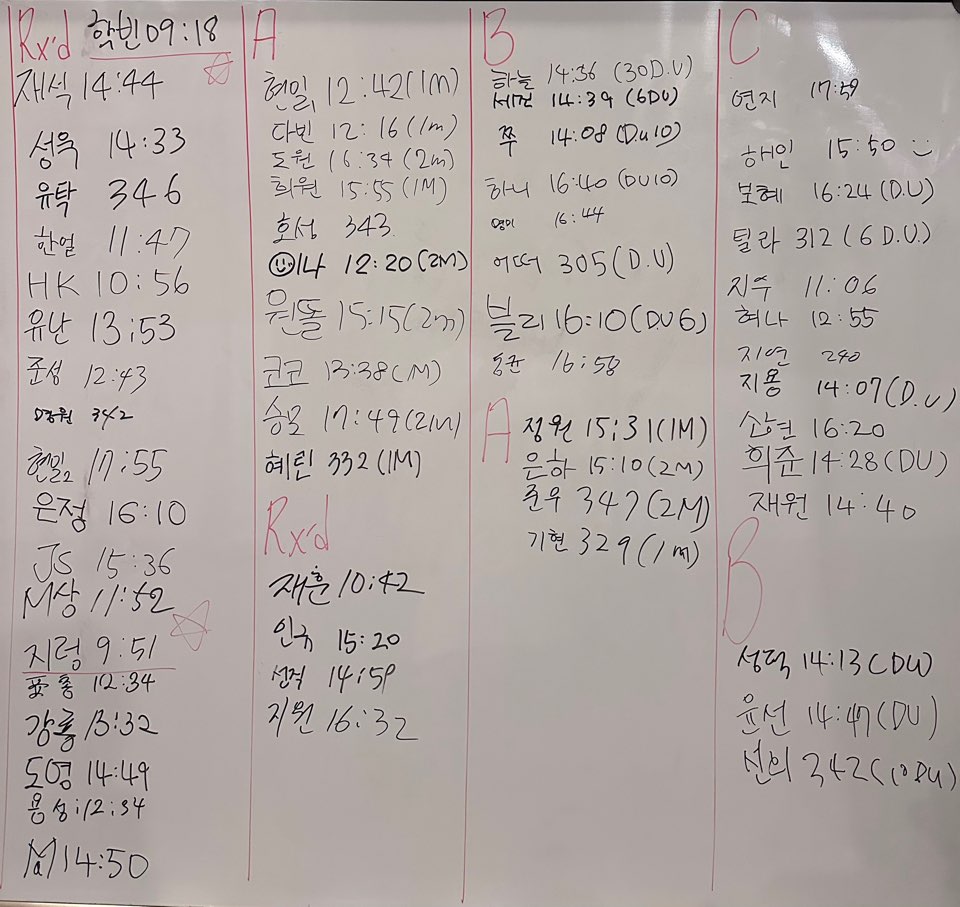 Rx'd 학빈 09:18
재석 14:44
성욱 14:33
유탁 346
한얼 11:47
HK 10:56
유난 13:53
준성 12:43
342
현일2 17:55
은정 16:10
JS 15:36
M상 11:52
지령 9:51
홍 12:34
강룡 13:32
도영 14:49
용성 12:34
14:50
A
현일1 12:42(1M)
다빈 12:16(1m)
도원 16:34(2m)
희원 15:55(1M)
호성 343
나 12:20(2M)
원돌 15:15(2m)
코코 13:38(1M)
승모 17:49(2M)
혜린 332(1M)
Rx'd
재훈 10:42
인규 15:20
선적 14:59
지원 16:32
B
하늘 14:36 (30D.U)
세건 14:39 (6DU)
쭈 14:08(Du10)
하니 16:40(DU10)
영이 16:44
어떠 305(D.U)
블리 16:10(DU6)
동균 16:58
A
정원 15:31(1M)
은하 15:10(2M)
준우 347(2M)
기현 329(1m)
C
연지 17:59
해인 15:50
보혜 16:24(D.U)
틸라 312(6 D.U.)
지우 11:06
허나 12:55
지연 240
지용 14:07(D.U)
소현 16:20
희준 14:28(DU)
재원 14:40
B
성덕 14:13(DU)
윤선 14:47(DU)
선의 342(10DU)